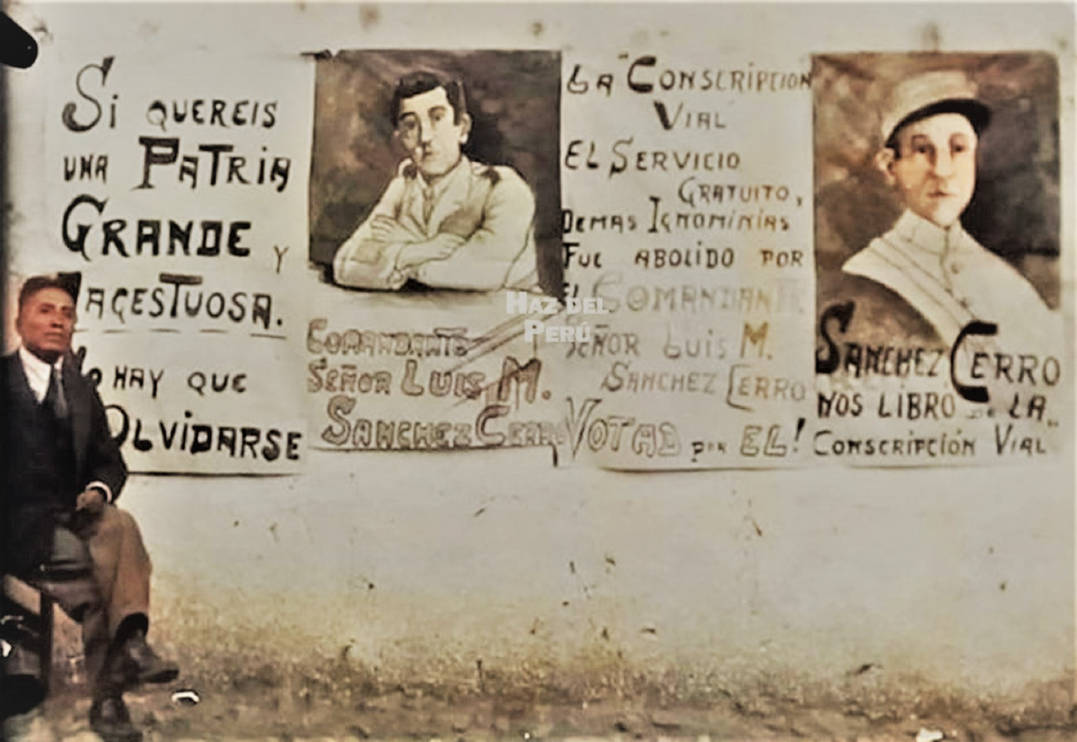 Si QUEREIS
UNA PATRIA
GRANDE Y
AGESTUOSA.
O HAY QUE
OLVIDARSE
COMANDANTE
SEÑOR LUIS M.
SANCHEZ CERRO
LA "CONSCRIPCION
VIAL
EL SERVICIO
GRATUITO,
DEMAS IGNOMINIAS
FUE ABOLIDO POR
EL COMANDANTE
SEÑOR LUIS M.
SANCHEZ CERRO
VOTAD POR EL!
SANCHEZ CERRO
NOS LIBRO DE LA
CONSCRIPCIÓN VIAL
HAZ DEL
PERÚ